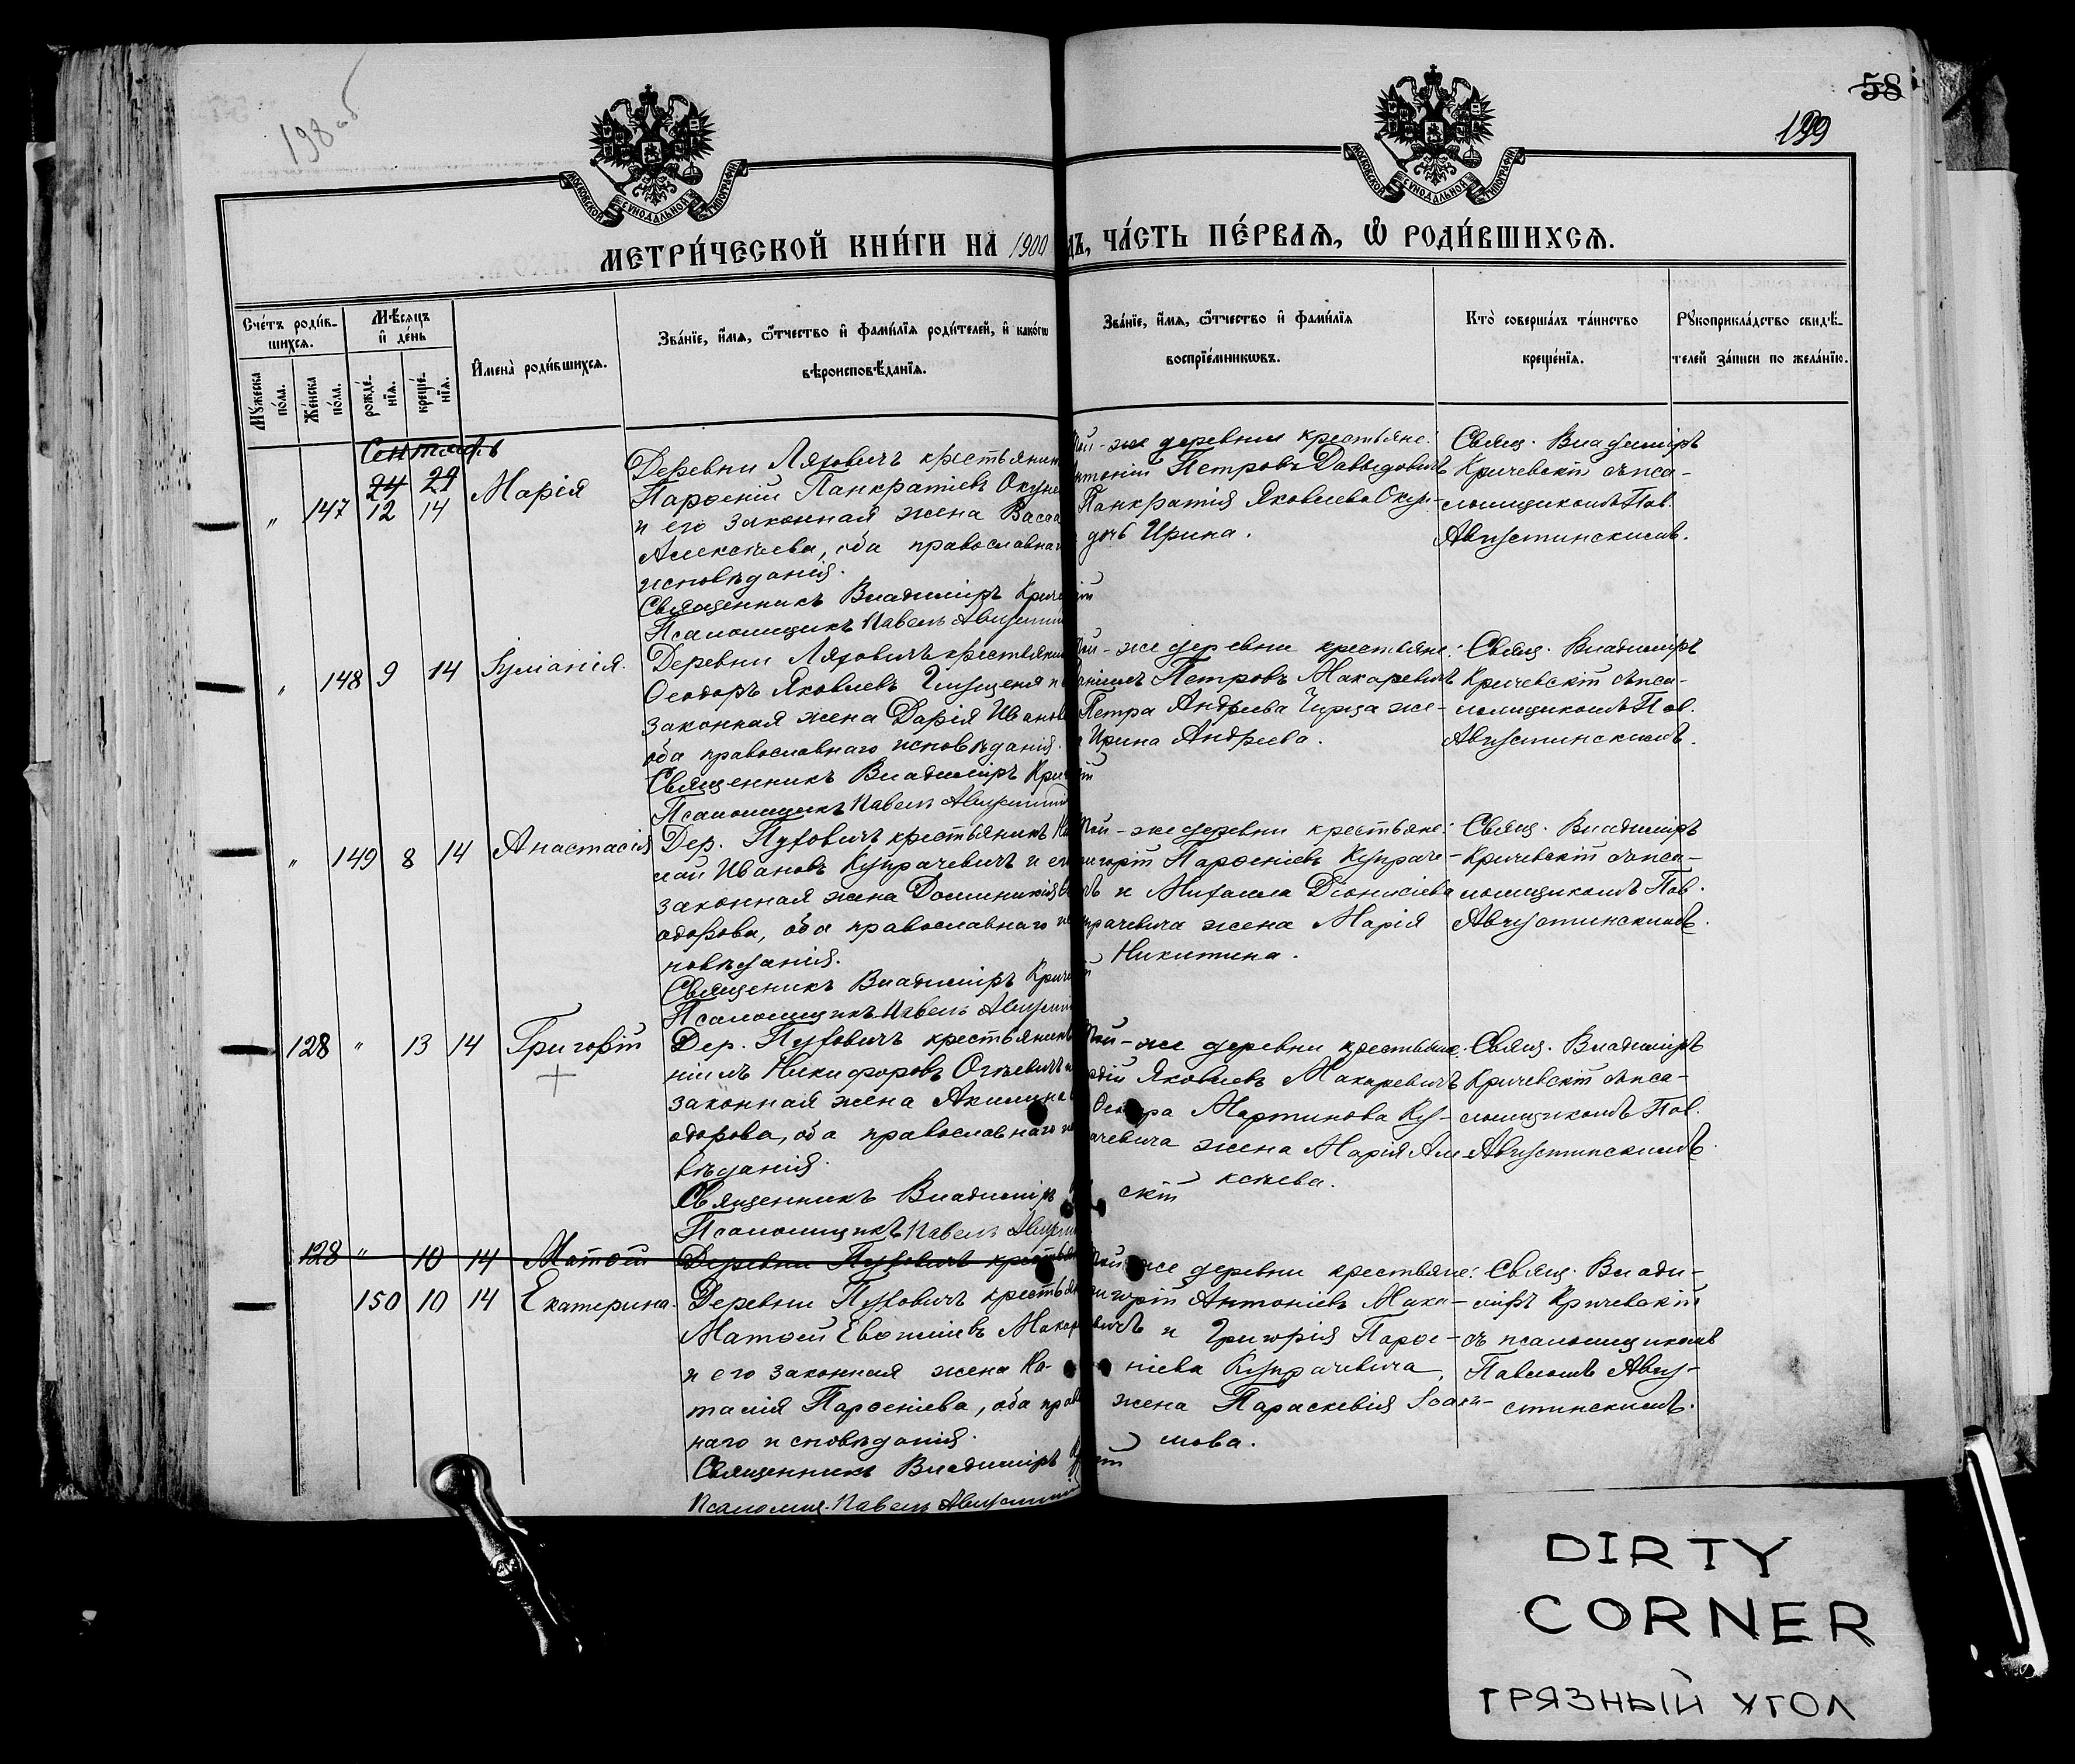 198 об
58
199
МОСКОВСКОЙ СѴНОДАЛЬНОЙ ТИПОГРАФІИ
МОСКОВСКОЙ СѴНОДАЛЬНОЙ ТИПОГРАФІИ
МЕТРИ́ЧЕСКОЙ КНИ́ГИ НА 1900 ДЪ, ЧА́СТЬ ПЕ́РВАѦ, Ѡ҆ РОДИ́ВШИХСѦ.
Сче́тъ роди́в-
шихсѧ.
Мѣ́сѧцъ
и҆ де́нь
Мꙋжеска
по́ла.
Же́нска
по́ла.
рожде́-
нїѧ.
креще́-
нїѧ.
И҆мена̀ роди́вшихсѧ.
Зва́нїе, и҆́мѧ, ѻ҆́тчество и҆ фами́лїѧ роди́телей, и҆ како́гѡ
вѣроисповѣ́данїѧ.
Зва́нїе, и҆́мѧ, ѻ҆́тчество и҆ фами́лїѧ
воспрїе́мникѡвъ.
Кто̀ соверша́лъ та́инство
креще́нїѧ.
Рꙋкоприкла́дство свидѣ́-
телей за́писи по жела́нїю.
Сентябрь
24 29
" 147 12 14 Марія
Деревни Ляховичъ крестьянин
Парѳеній Панкратіевъ Окун
и его законная жена Васса
Алексѣева, оба православна
исповѣданія.
Священникъ Владиміръ Крич
Псаломщикъ Павелъ Августин
той-же деревни крестьяне:
Антоній Петровъ Давыдовичъ
Панкратія Яковлева Окун-
дочь Ирина.
Свящ. Владиміръ
Кричевскій съ пса-
ломщикомъ Пав.
Августинскимъ.
" 148 9 14 Іуліанія.
Деревни Ляховичъ крестьянин
Ѳеодоръ Яковлевъ
законная жена Дарія Иванов
оба православнаго исповѣданія.
Священникъ Владиміръ Крич
Псаломщикъ Павелъ Августин
той-же деревни крестьяне:
Петровъ Макаревичъ
Петра Андреева же-
Ирина Андреева.
Свящ. Владиміръ
Кричевскій съ пса-
ломщикомъ Пав.
Августинскимъ.
" 149 8 14 Анастасія
Дер. Пуховичъ крестьянинъ Ни
лай Ивановъ Купрачевичъ и его
законная жена Доминикія Ѳе
одорова, оба православнаго ис
повѣданія.
Священикъ Владиміръ Крич
Псаломщикъ Павелъ Августин
той-же деревни крестьяне:
игорій Парѳеніевъ Купраче-
чъ и Михаила Діонисіева
прачевича жена Марія
Никитина.
Свящ. Владиміръ
Кричевскій съ пса-
ломщикомъ Пав.
Августинскимъ.
128 " 13 14 Григорій
Дер. Пуховичъ крестьянинъ
ніилъ Никифоровъ Огіевичъ и
законная жена Акилина
одорова, оба православнаго ис
вѣданія.
Священникъ Владиміръ
Псаломщикъ Павелъ Августин
той-же деревни крестьяне:
Яковлевъ Макаревичъ
Ѳеодора Мартинова Ку-
ачевича жена Марія Але-
ксѣева.
скій
Свящ. Владиміръ
Кричевскій съ пса-
ломщикомъ Пав.
Августинскимъ.
128 " 10 14 Матѳій Деревни Пуховичъ крестьян
150 10 14 Екатерина.
Деревни Пуховичъ крестьян
Матѳей Евѳиміевъ Макар
и его законная жена На-
талія Парѳеніева, оба прав
наго исповѣданія.
Священникъ Владиміръ
Псаломщ. Павелъ Августин
той же деревни крестьяне:
игорій Антоніевъ Мака-
вичъ и Григорія Парѳе-
ніева Купрачевича,
жена Параскевія Іоаки-
мова.
Свящ. Влади-
міръ Кричевскій
съ псаломщикомъ
Павломъ Авгу-
стинскимъ.
DIRTY
CORNER
ГРЯЗНЫЙ УГОЛ